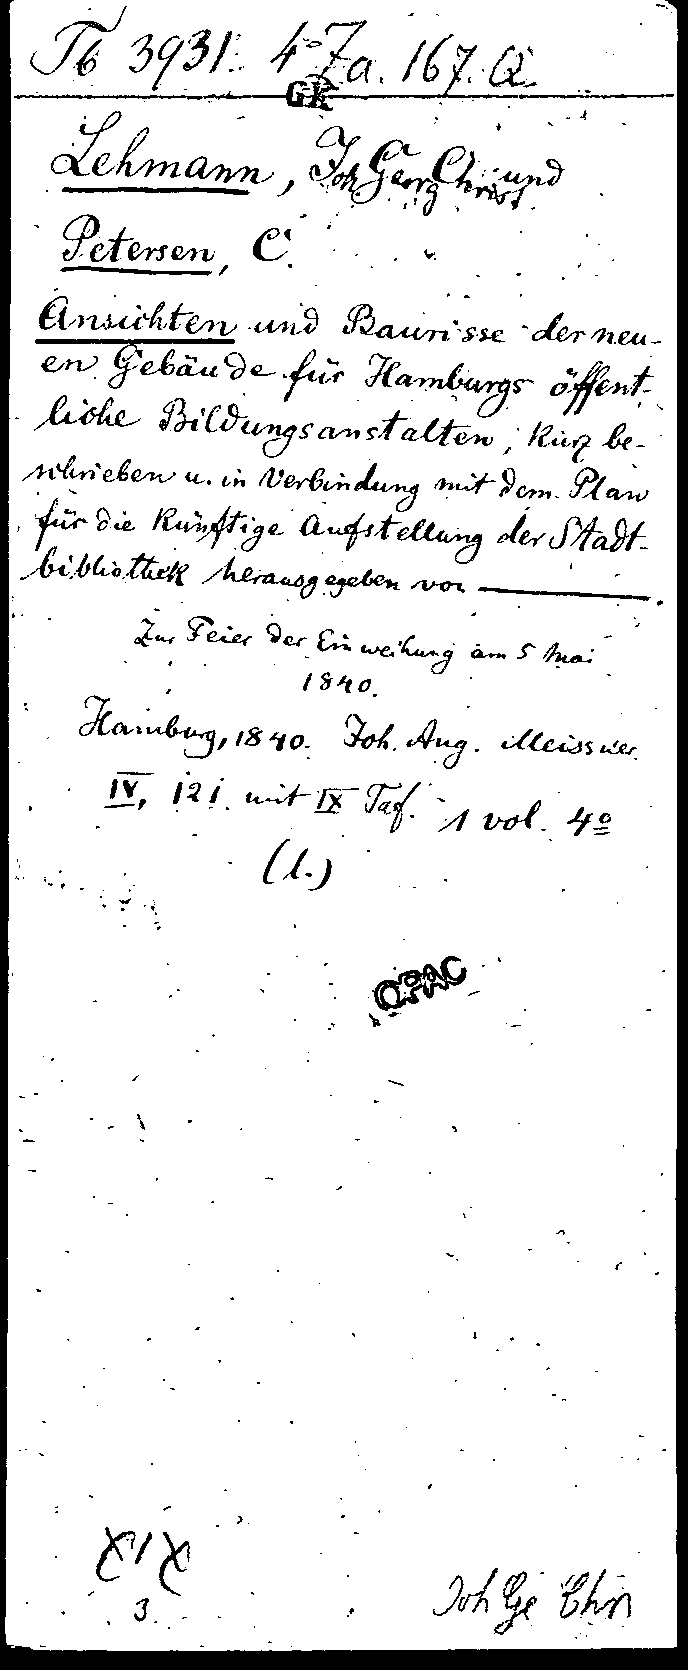 Tb 3931. 4° 7a. 167. Q.
GK
Lehmann, Joh Georg Christ und
Petersen, C.
Ansichten und Baurisse der neu-
en Gebäude für Hamburgs öffent-
liche Bildungsanstalten, kurz be-
schrieben u. in Verbindung mit dem Plan
für die künftige Aufstellung der Stadt-
bibliothek herausgegeben von ———.
Zur Feier der Einweihung am 5 Mai
1840.
Hamburg, 1840. Joh. Aug. Meissner.
IV, 121. mit IX Taf. 1 vol. 4º
(l.)
OPAC
3
Joh Ge Chr